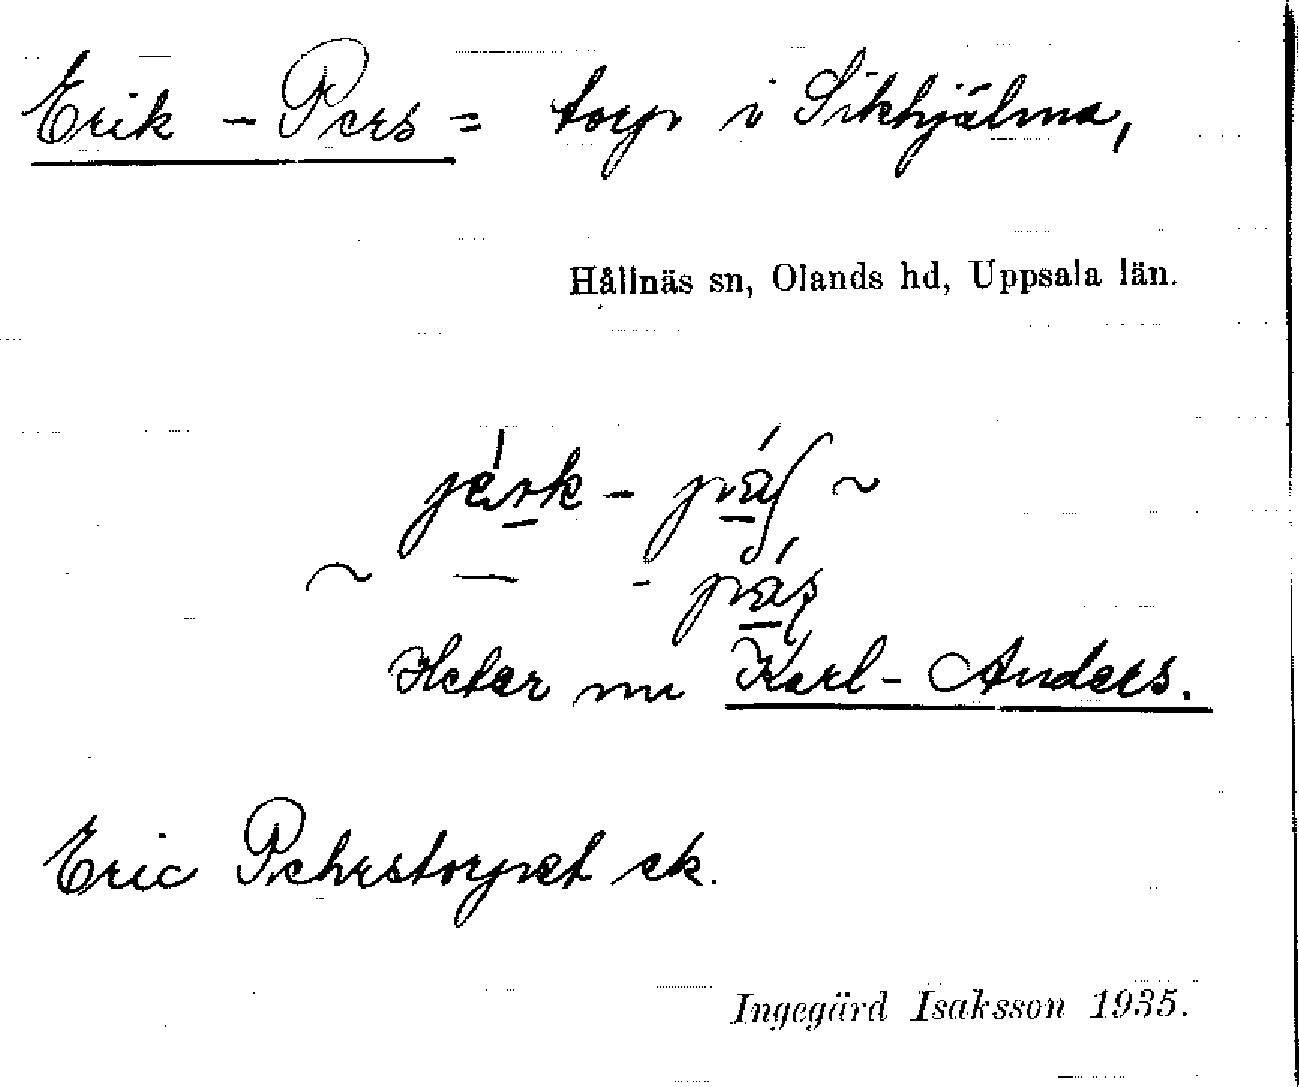 Erik - Pers = torp i Sikhjälma,
Hållnäs sn, Olands hd, Uppsala län.
Heter nu Karl-Anders.
Eric Pehrstorpet ek.
Ingegärd Isaksson 1935.